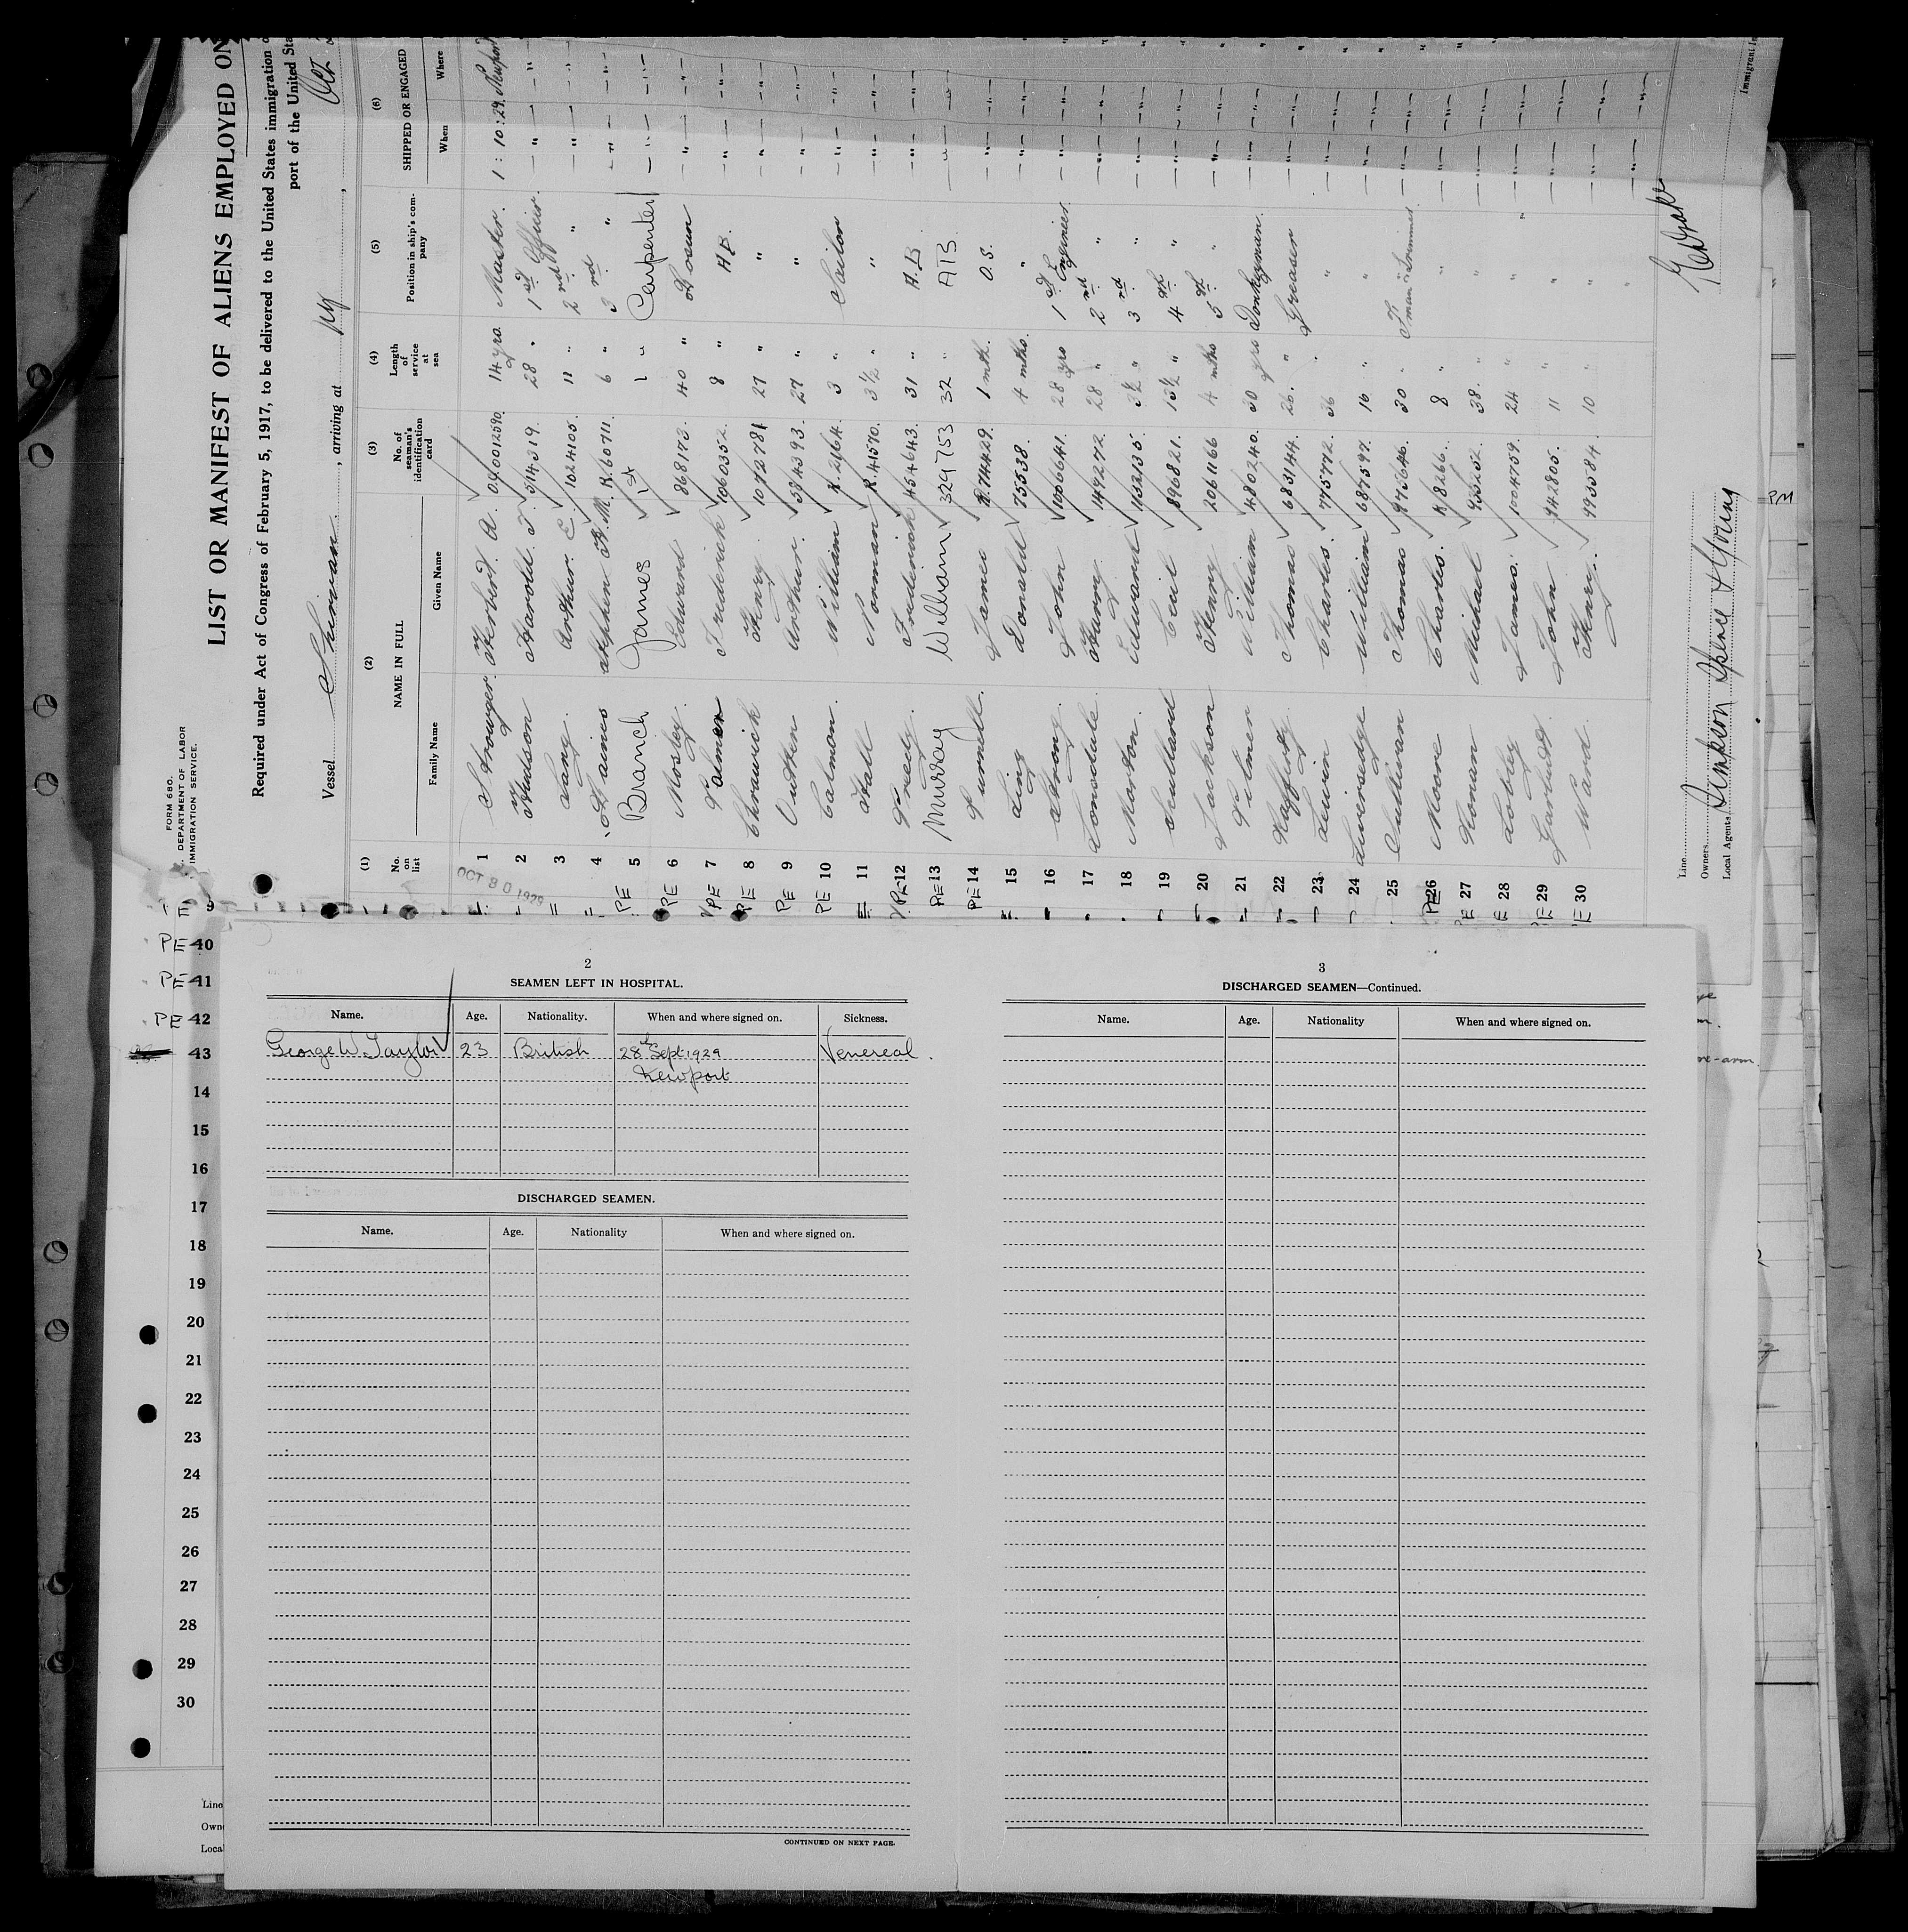 FORM 680.
DEPARTMENT OF LABOR
IMMIGRATION SERVICE.
LIST OR MANIFEST OF ALIENS EMPLOYED ON
Required under Act of Congress of February 5, 1917, to be delivered to the United States immigration
port of the United Sta
Vessel Sheirwan, arriving at
(1) (2) (3) (4) (5) (6)
No. on list NAME IN FULL No. of seaman's identification card Length of service at sea Position in ship's company SHIPPED OR ENGAGED
Family Name Given Name When Where
OCT 30 1929
1 Strowger Herbert A. 0.0012590. 14 yrs. Master. 1:10:29. Newport
2 Hudson Harold J. 514319. 28 " 1st Officer. " "
3 Lang. Arthur E 1024105. 11 " 2nd " " "
4 Haines Stephen H.M. R.60711. 6 " 3rd " " "
PE 5 Branch James 1st 1 " Carpenter " "
PE 6 Mosley. Edward 868173. 40 " Bosun " "
PE 7 Palmer Frederick 1060352. 8 " A.B. " "
PE 8 Henry. 1072781 27 " " " "
PE 9 Arthur. 584393. 27 " " " "
PE 10 Calmon. William R.2164. 3 " Sailor " "
11 Hall Norman R.41570. 3½ " " " "
PE 12 Greely. Frederick 454643. 31 " A.B " "
PE 13 Murray William 329753 32 " ATB " "
PE 14 Purnell. James R.74429. 1 mth. O.S. " "
15 Ling Donald 75538. 4 mths. " " "
16 Strong. John 1006641. 28 yrs 1st Engineer. " "
17 Lonsdale Harry 1149272. 28 " 2nd " " "
18 Morton. Edward 1132135. 3½ " 3rd " " "
19 Cecil 896821. 13½ " 4th " " "
20 Jackson Henry 2061166 4 mths 5th " " "
21 Gilmer William 480240. 30 yrs Donkeyman. " "
22 Thomas 683144. 26. " Greaser " "
23 Lewin Charles. 775772. 36 " " " "
24 Liversedge William 687597. 16 " " " "
25 Sullivan Thomas 30 " F'man & Trimmer. " "
PE 26 Moore Charles. R8266. 8 " " " "
PE 27 Michael 933252. 38. " " " "
E 28 Lobley James. 1004759. 24 " " " "
PE 29 Garlick John 942805. 11 " " " "
E 30 Ward. Henry. 993584. 10 " " " "
Line
Owners
Local Agents Simpson Spence & Young
Immigrant In
PM
PE 10
PE 11
PE 12
13
14
15
16
17
18
19
20
21
22
23
24
25
26
27
28
29
30
Line
Own
Local
re-arm.
2
SEAMEN LEFT IN HOSPITAL.
Name. Age. Nationality. When and where signed on. Sickness.
George W. Taylor 23 British 28th Sept 1929 Venereal.
Newport
DISCHARGED SEAMEN.
Name. Age. Nationality When and where signed on.
CONTINUED ON NEXT PAGE.
3
DISCHARGED SEAMEN—Continued.
Name. Age. Nationality When and where signed on.